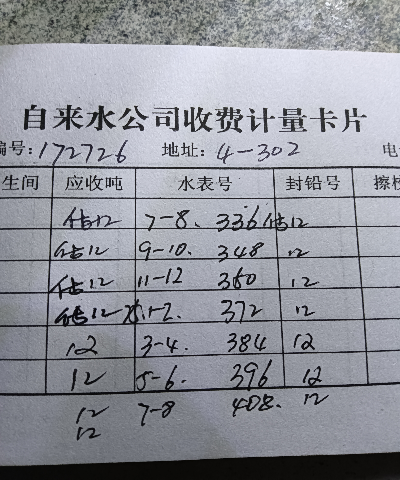 自来水公司收费计量卡片
编号:172726 地址: 4-302
生间 应收吨 水表号 封铅号
估12 7-8. 336 估12
估12 9-10. 348 12
估12 11-12 360 12
估12 1-2. 372 12
12 3-4. 384 12
12 5-6. 396 12
12 7-8 408. 12
12